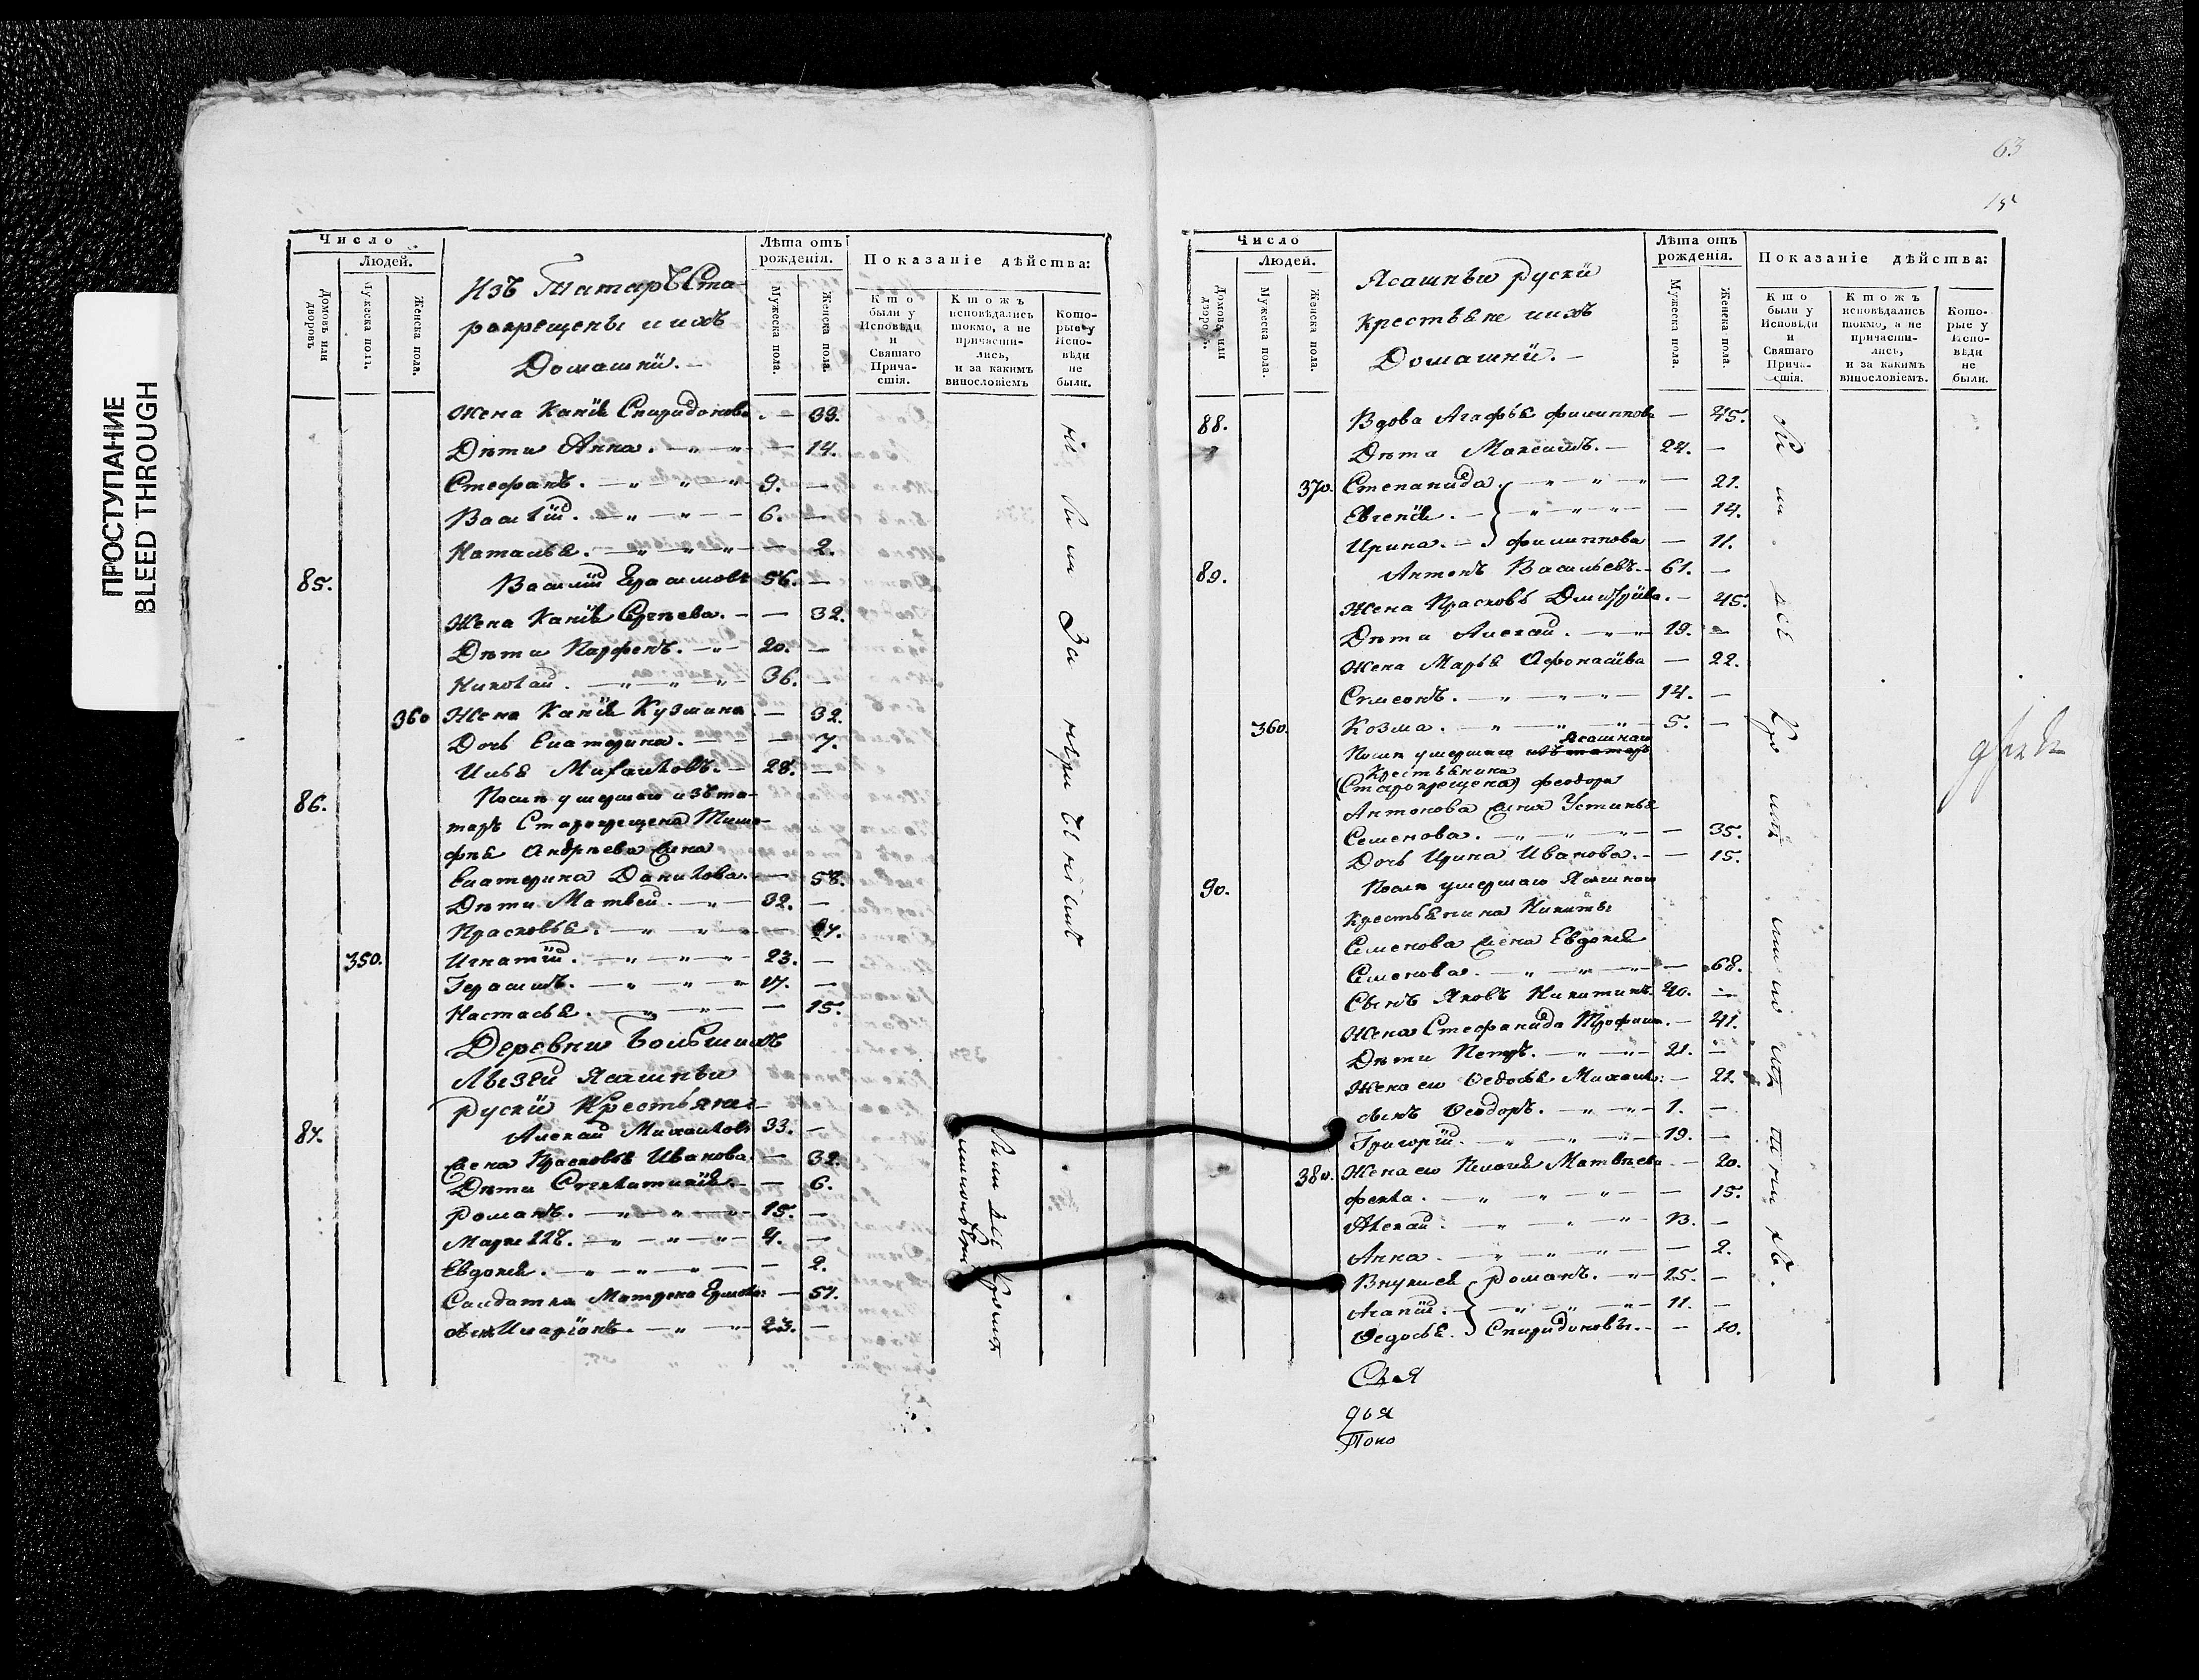 ПРОСТУПАНИЕ
BLEED THROUGH
Число
Людей.
Домовъ или дворовъ
Мужеска полъ.
Женска пола.
Изъ Татаръ Ста-
рокрещены и ихъ
Домашнїи. —
Лѣта отъ рожденія.
Мужеска пола.
Женска пола.
Показаніе дѣйства:
Кто были у Исповѣди и Святаго Прича-стія.
Ктожъ исповѣдались токмо, а не причасти-лись, и за какимъ винословіемъ
Кото-рые у Испо-вѣди не были.
Жена Ксанїѧ Спиридонова — 39.
Дѣти Анна. — 14.
Стефанъ. 9. —
Василїй. 6. —
Наталья. — 2.
85. Василїй Ерасимовъ 56. —
Жена Ксанїѧ Сергѣева. — 32.
Дѣти Парфенъ. 20. —
Николай. 36. —
360 Жена Ксанїѧ Кузмина — 32.
Дочь Екатерина. — 7.
Илья Михайловъ. 28. —
86. Послѣ умершаго изъ та-
таръ Старокрещена Тимо-
фѣя Андрѣева жена
Екатерина Данилова. — 58.
Дѣти Матвей. 32. —
Прасковья. — 27.
350. Игнатїй. 23. —
Герасимъ. 17. —
Настасья. — 15.
Деревни Большихъ
Лызей Ясашныи
рускїи Крестьяни
87. Алексай Михайловъ 33. —
жена Прасковья Иванова. — 32.
Дѣти Стеклатинїѧ. — 6.
романъ. 15. —
Евдокея. — 2.
Салдатка Матрена Ермол: — 57.
сынъ Иларїонъ. 23. —
63
15
Число
Людей.
Домовъ или дворовъ
Мужеска пола.
Женска пола.
Ясашныи рускїи
Крестьяне и ихъ
Домашнїи. —
Лѣта отъ рожденія.
Мужеска пола.
Женска пола.
Показаніе дѣйства:
Кто были у Исповѣди и Святаго Прича-стія.
Ктожъ исповѣдались токмо, а не причасти-лись, и за какимъ винословіемъ.
Кото-рые у Испо-вѣди не были.
88. Вдова Агафья филиппова — 45.
Дѣта Максимъ. 24. —
370. Степанида. — 21.
Евгенїѧ. — 14.
Ирина. филиппова — 11.
89. Антонъ Васильевъ. 61. —
Жена Прасковья Дмитрїива. — 45.
Дѣти Алексай. 19. —
Жена Марья Афонасїива — 22.
Симеонъ. 14. —
360. Козма. 5. —
Послѣ умершаго изъ татаръ Ясашнаго
Крестьянина
(Старокрещена) феодора
Антонова жена Устинья
Семенова. — 35.
Дочь Ирина Иванова. — 15.
90. Послѣ умершаго Ясашнаго
Крестьянина Никиты
Семенова жена Евдокея
Семенова. — 68.
Сынъ Яковъ Никитинъ. 40. —
Жена Стефанида Трофимо. — 41.
Дѣти Петръ. 21. —
Жена его Ѳедосья Михайл: — 22.
сынъ Ѳеодоръ. 1. —
Григорїй. 19. —
380. Жена его Пелагея Матвѣева — 20.
фекла. — 15.
Алексай. 13. —
Анна. — 2.
Внучыи романъ. 15. —
Агапїй. 11. —
Ѳедосья. Спиридоновы. — 10.
Свя
дья
Поно